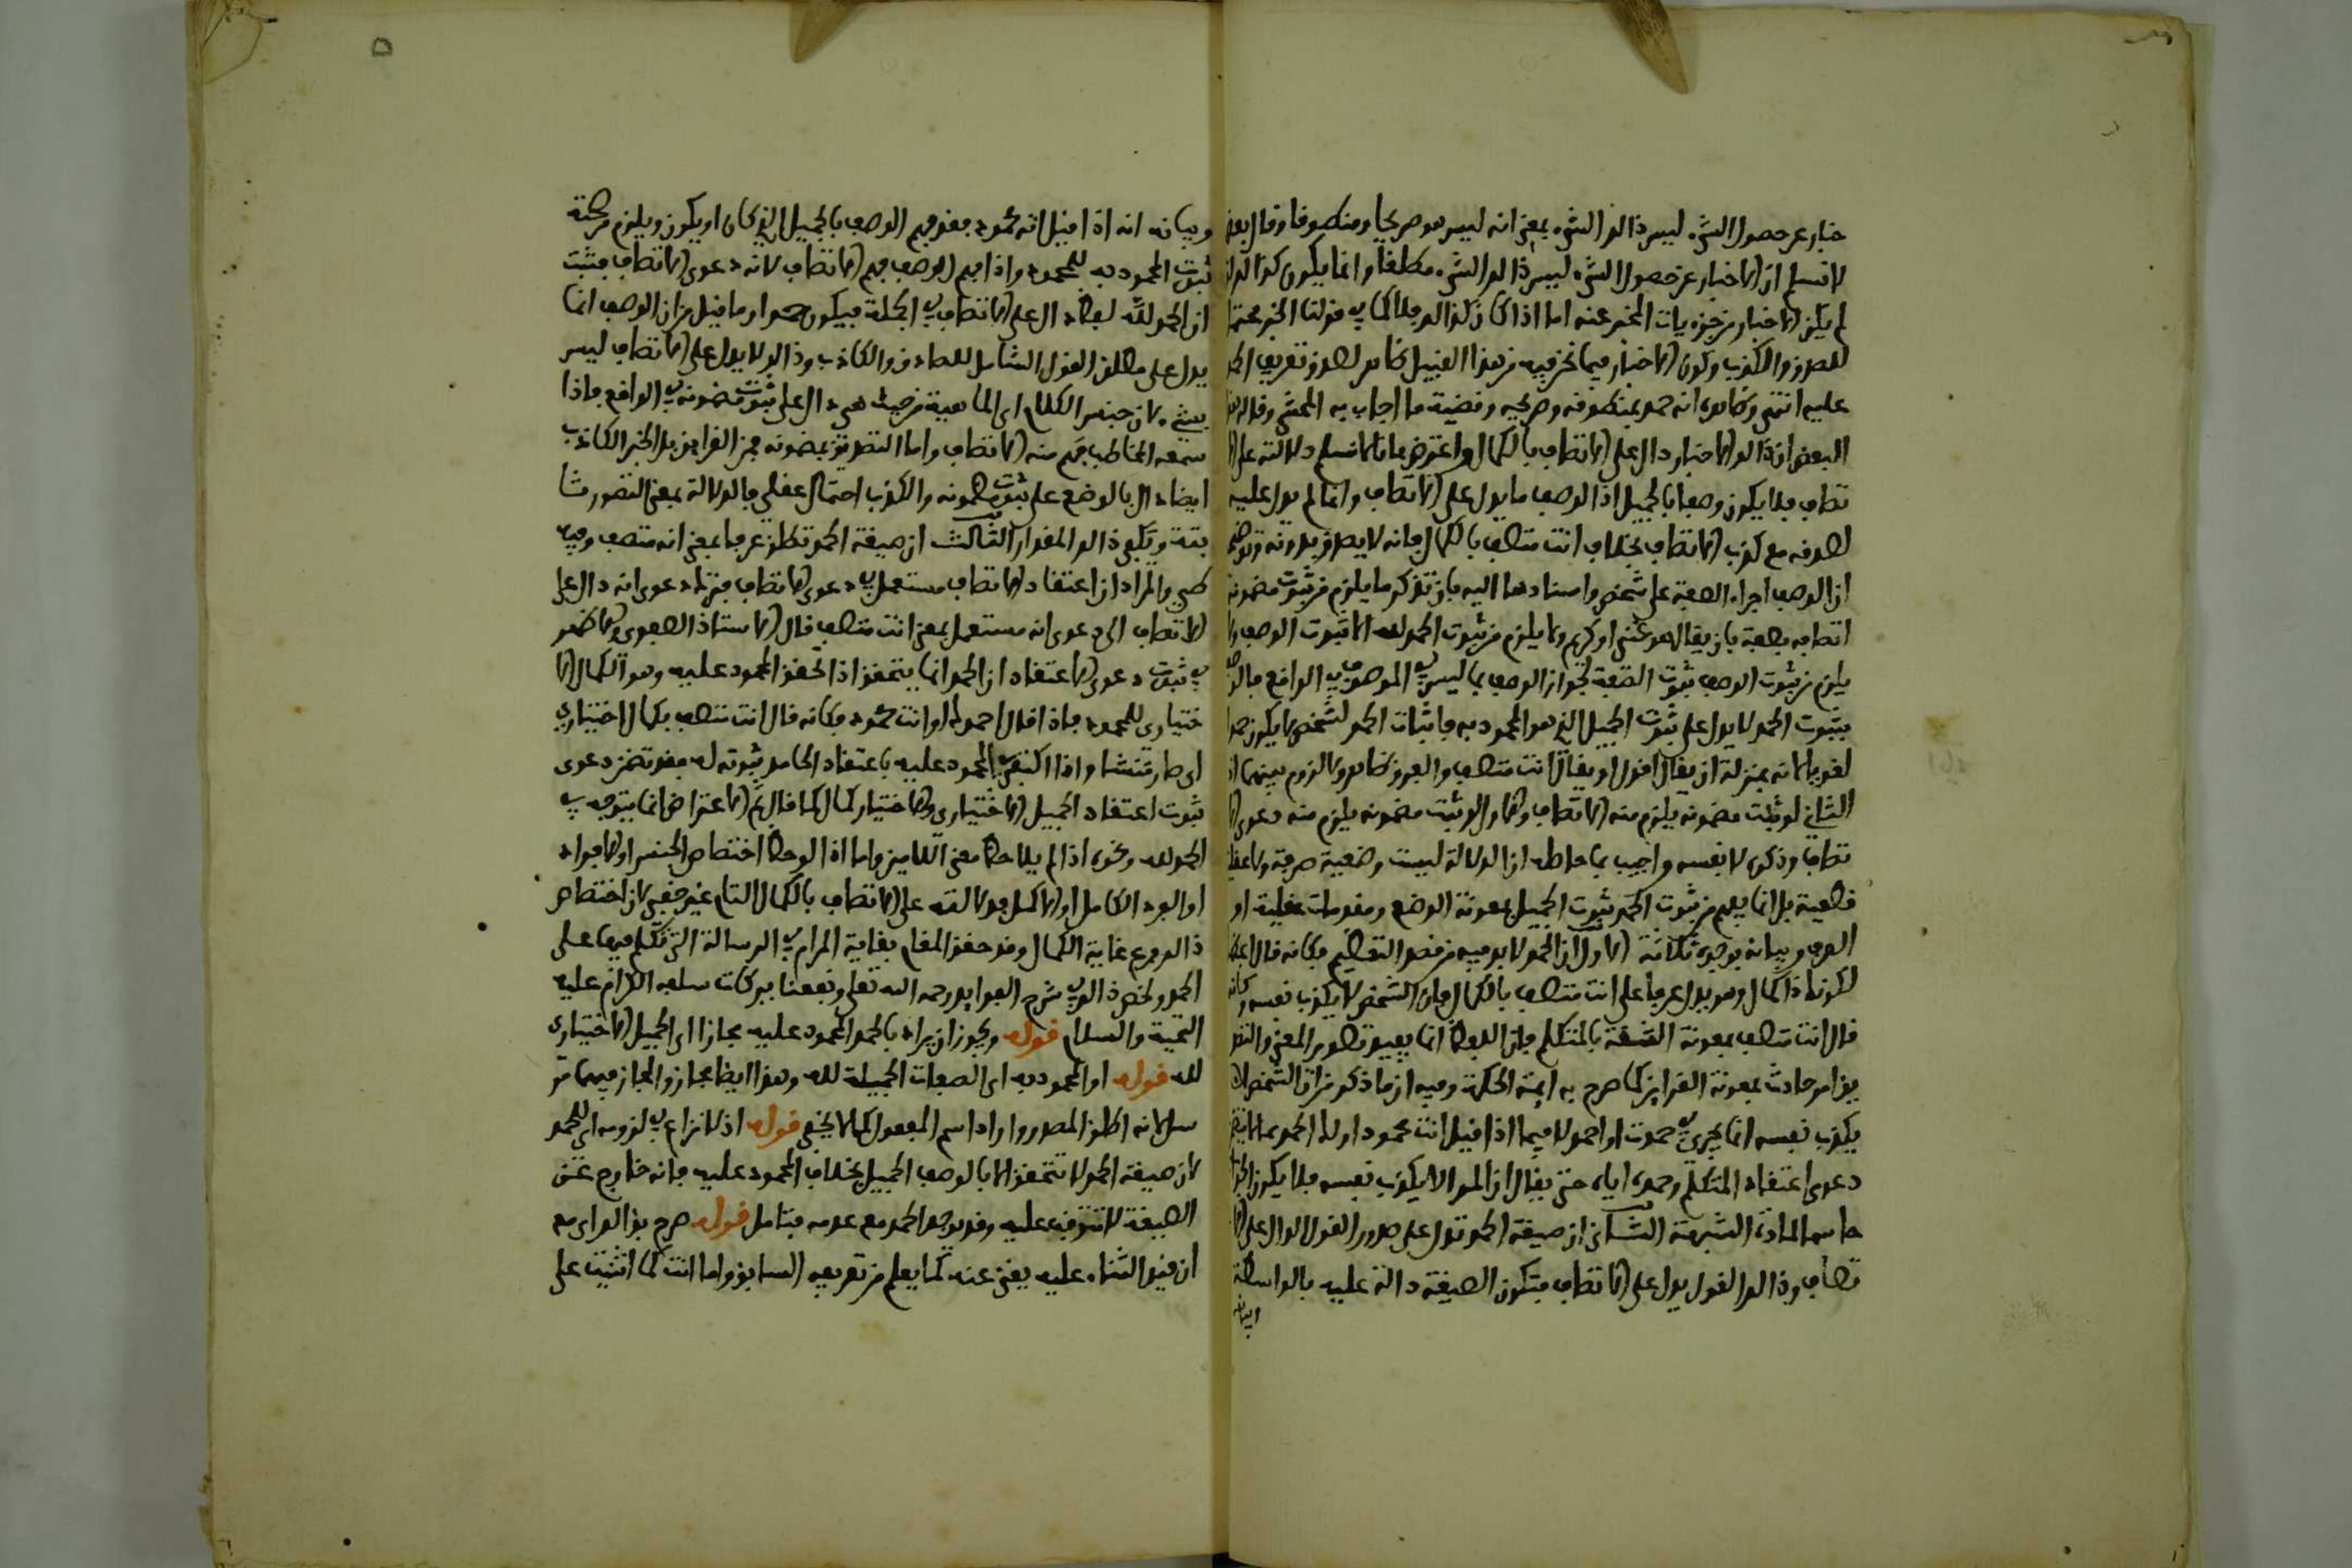 خبار عن حصول الشيء ليس ذالك الشيء بمعنى انه ليس هو صريحا ومنطوقا وقال بعض
لا نسلم ان الاخبار عن حصول الشيء ليس ذالك الشيء مطلقا وانما يكون كذالك ان
لم يكن الاخبار من جزءيات المخبر عنه اما اذا كان كذالك فلا كما في قولنا الخبر محتمل
للصدق والكذب وكون الاخبار فيما نحن فيه من هذا القبيل ظاهر لصدق تعريف الحمد
عليه انتهى وظاهره انه حمد بمنطوقه وصريحه وقضية ما اجاب به المحشي وقال
البعض ان ذالك الاخبار دال على الاتصاف بالكمال واعترض بانا لا نسلم دلالته على الا
تصاف فلا يكون وصفا بالجميل اذ الوصف ما يدل على الاتصاف وانما لم يدل عليه
لصدقه مع كذب الاتصاف بخلاف انت متصف بالكمال فانه لا يصدق بدونه وتوضيحه
ان الوصف اجراء الصفة على شخص واسنادها اليه بان تذكر ما يلزم من ثبوت مضمونه
اتصافه بصفة بان يقال هو غني او كريم ولا يلزم من ثبوت الحمد لله الا ثبوت الوصف ولا
يلزم من ثبوت الوصف ثبوت الصفة لجواز الوصف بما ليس في الموصوف في الواقع فالوصف
بثبوت الحمد لا يدل على ثبوت الجميل الذي هو المحمود به فاثبات الحمد لشخص لا يكون حمدا
لغويا لانه بمنزلة ان يقال اقول او يقال انت متصف والفرق ظاهر ولا لزوم بينهما اذ
الثاني لو ثبت مضمونه يلزم منه الاتصاف والاول لو ثبت مضمونه يلزم منه دعوى الا
تصاف وذكره لا نفسه واجيب بما حاصله ان الدلالة ليست وضعية صرفة ولا عقلية
قطعية بل انما يفهم من ثبوت الحمد ثبوت الجميل بمعونة الوضع ومقدمات عقلية او
العرف وبيانه بوجوه ثلاثة الاول ان الحمد لا بد فيه من قصد التعظيم فكانه قال
لكونك ذا كمال وهو يدل عرفا على انت متصف بالكمال فان الشخص لا يكذب نفسه وكانه
قال انت متصف بمعونة الثقة بالمتكلم فان اللفظ انما يفيد تصوير المعنى والتصد
يق امر حادث بمعونة القراين كما صرح به ايمة الحكمة وفيه ان ما ذكر من ان الشخص لا
يكذب نفسه انما يجري في حمدت او احمد لا فيما اذا قيل انت محمود او لك الحمد مما لا يتضمن
دعوى اعتقاد المتكلم وحمده اياه حتى يقال ان المرء لا يكذب نفسه فلا يكون الجواب
حاسما لمادة الشبهة الثاني ان صيغة الحمد تدل على صدور القول الدال على الا
تصاف وذالك القول يدل على الاتصاف فتكون الصيغة دالة عليه بالواسطة
وبيانه
وبيانه انه اذا قيل انه محمود فقد فهم الوصف بالجميل الذي كان او يكون ويلزم من صحته
ثبوت المحمود به للمحمود واذا فهم الوصف فهم الاتصاف لانه دعوى الاتصاف فثبت
ان الحمد لله لفظ دال على الاتصاف في الجملة فيكون حمدا وما قيل من ان الوصف انما
يدل على مطلق القول الشامل للصادق والكاذب وذالك لا يدل على الاتصاف ليس
بشيء لان جنس الكلام اي الماهية من حيث هي دال على ثبوت مضمونه في الواقع فاذا
سمعه المخاطب فهم منه الاتصاف واما التصديق بمضمونه فمن القراين بل الخبر الكاذب
ايضا دال بالوضع على ثبوت مضمونه والكذب احتمال عقلي فالدلالة بمعنى التصور ثا
بتة ويكفي ذالك المقدار الثالث ان صيغة الحمد تطلق عرفا بمعنى انه متصف وفيه
طي والمراد ان اعتقاد الاتصاف مستعمل في دعوى الاتصاف فتنزل دعوى انه دال على
الاتصاف الى دعوى انه مستعمل بمعنى انت متصف قال الاستاذ الصفوي والاظهر
في ثبوت دعوى الاعتقاد ان الحمد انما يتحقق اذا تحقق المحمود عليه وهو الكمال الا
ختياري للمحمود فاذا قال احمدك او انت محمود فكانه قال انت متصف بكمال اختياري
اي صار منشا واذا اكتفي في المحمود عليه باعتقاد الحامد ثبوته له فقد تضمن دعوى
ثبوت اعتقاد الجميل الاختياري والاختيار كمال كما قال ثم الاعتراض انما يتوجه في
الحمد لله ونحوه اذا لم يلاحظ معنى اللامين واما اذا لوحظ اختصاص الجنس او الافراد
او الفرد الكامل او الاكمل فدلالته على الاتصاف بالكمال التام غير خفي لان اختصاص
ذالك فرع غاية الكمال وقد حقق المقام بغاية المرام في الرسالة التي تكلم فيها على
الحمد ولخص ذالك في شرح الفوايد رحمه الله تعلى ونفعنا ببركات سلفه الكرام عليه
التحية والسلام قوله ويجوز ان يراد بالحمد المحمود عليه مجازا اي الجميل الاختياري
لله قوله او المحمود به اي الصفات الجميلة لله وهذا ايضا مجاز والمجاز فيهما مر
سل لانه اطلق المصدر واراد اسم المفعول كما لا يخفى قوله اذ لا نزاع في لزومه اي للحمد
لان صيغة الحمد لا تتحقق الا بالوصف الجميل بخلاف المحمود عليه فانه خارج عن
الصيغة لا تتوقف عليه وقد يوجد الحمد مع عدمه فتامل قوله صرح بذالك اي مع
ان قيد الثناء عليه يغني عنه كما يعلم من تعريفه السابق واما انت كما اثنيت على